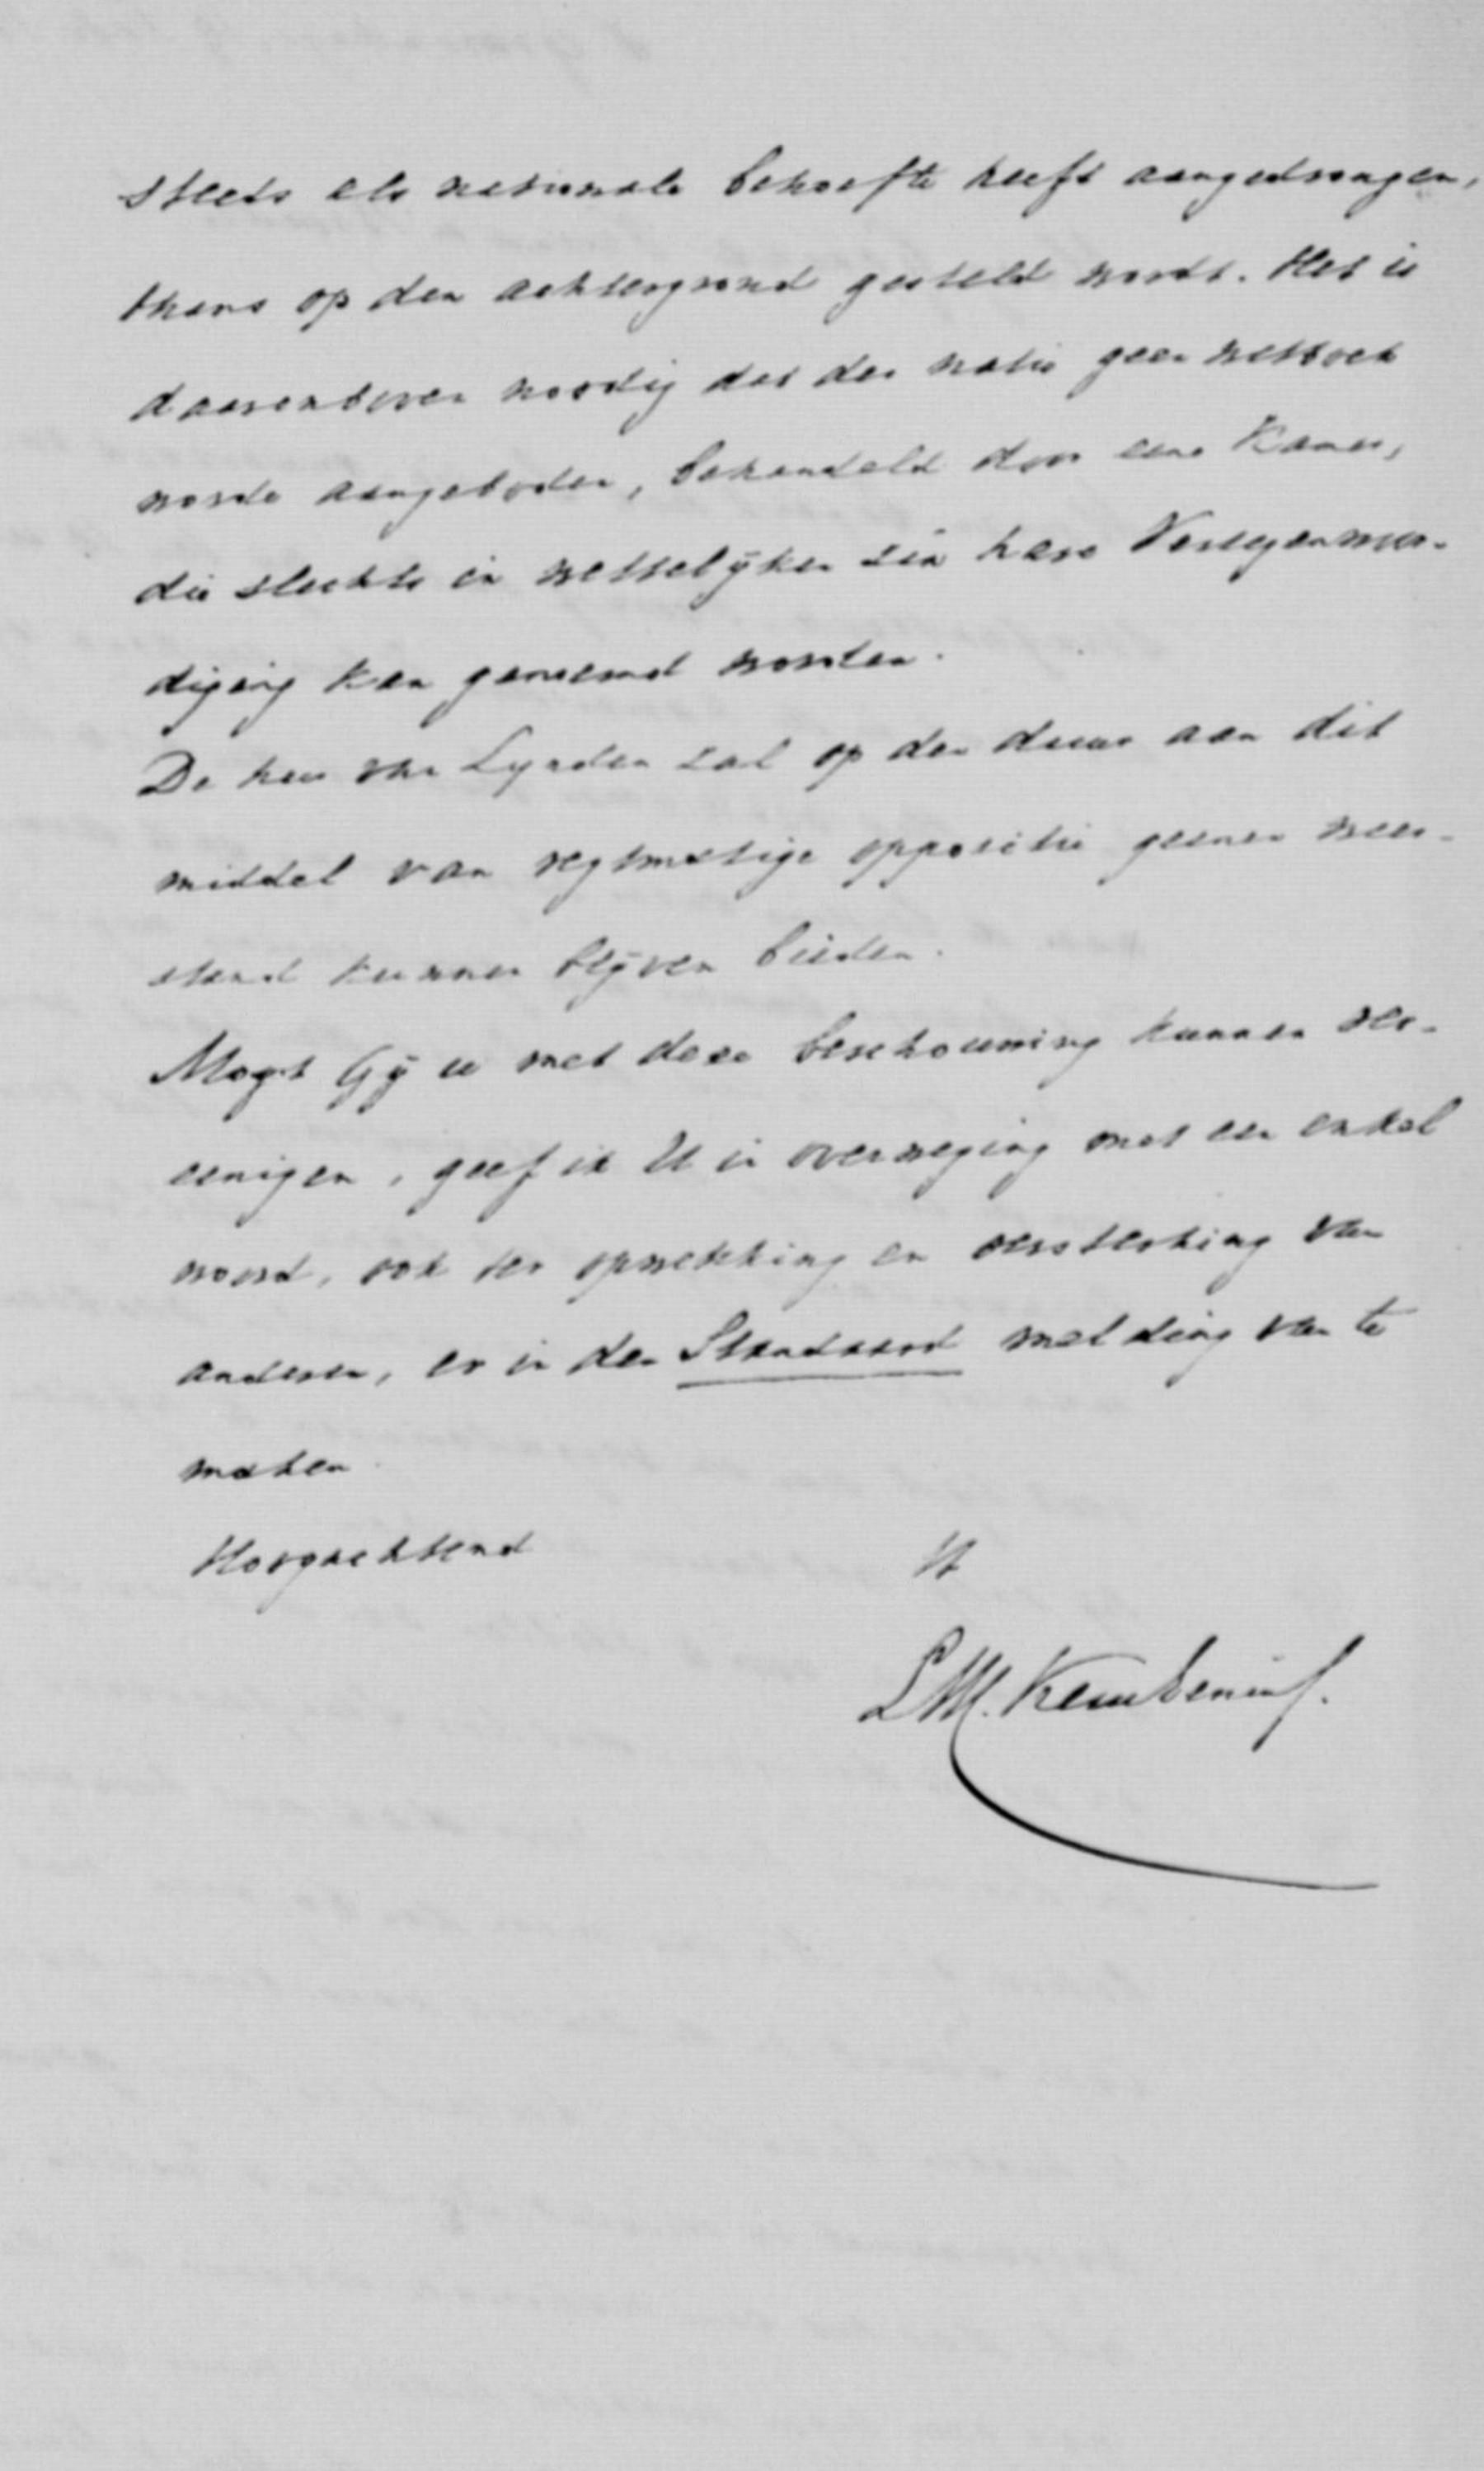 steeds als nationale behoefte heeft aangedrongen,
thans op den achtergrond gesteld wordt. Het is
daarenboven noodig dat der natie geen wetboek
worde aangeboden, behandeld door eene Kamer,
die slechts in wettelijken zin hare Vertegenwoor-
diging kan genoemd worden.
De heer van Lynden zal op den duur aan dit
middel van regtmatige oppositie geenen weer-
stand kunnen blijven bieden.
Mogt Gij u met deze beschouwing kunnen ver-
eenigen, geef ik U in overweging met een enkel
woord, ook ter opwekking en versterking van
anderen, er in den Standaard melding van te
maken.
Hoogachtend
L.M.